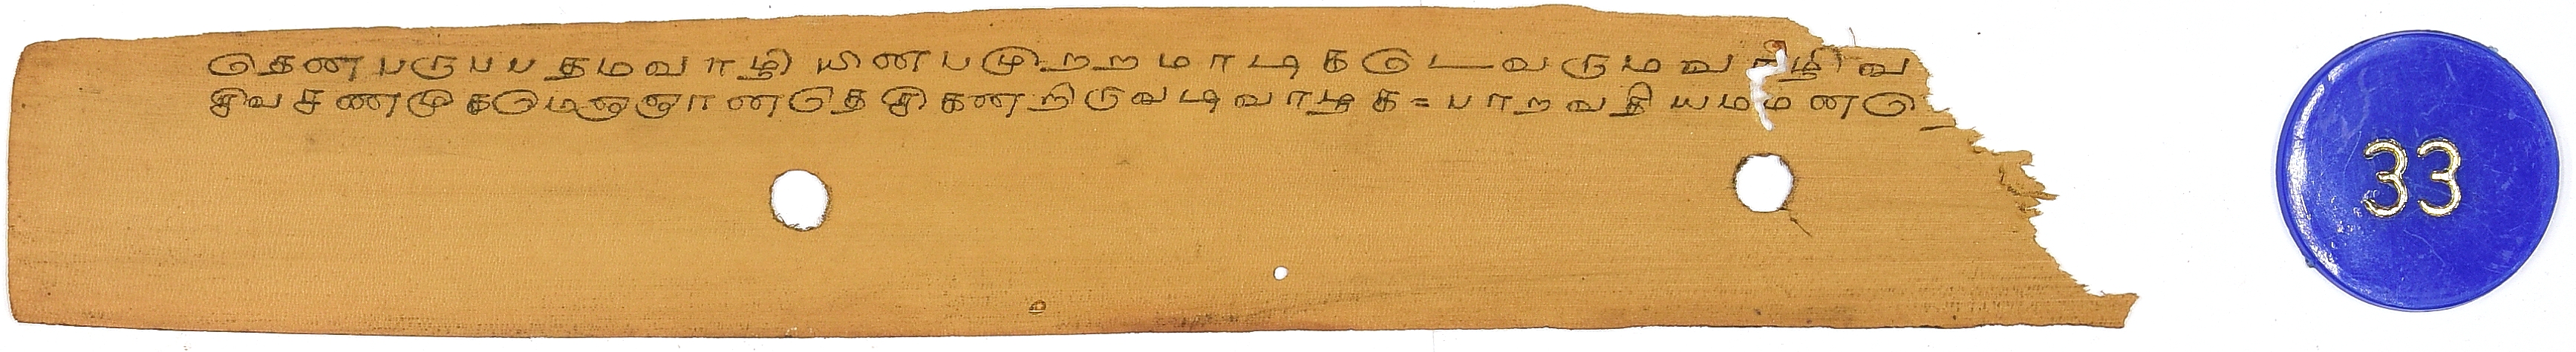 தெண பருபபதமவாழி யினபமுறற மாடககுடவருமவாழி வ
சிவசணமுகமெஞஞானதெசிகணறிருவடிவாழக = பாறவதியமமன
33